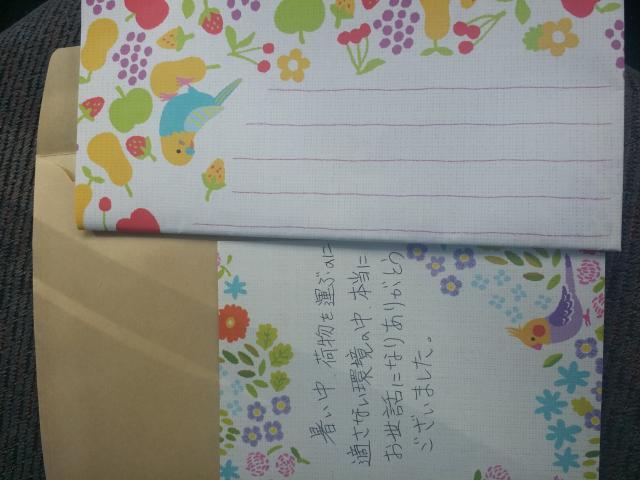 暑い中、荷物を運ぶのに
適さない環境の中、本当に
お世話になりありがとう
ございました。